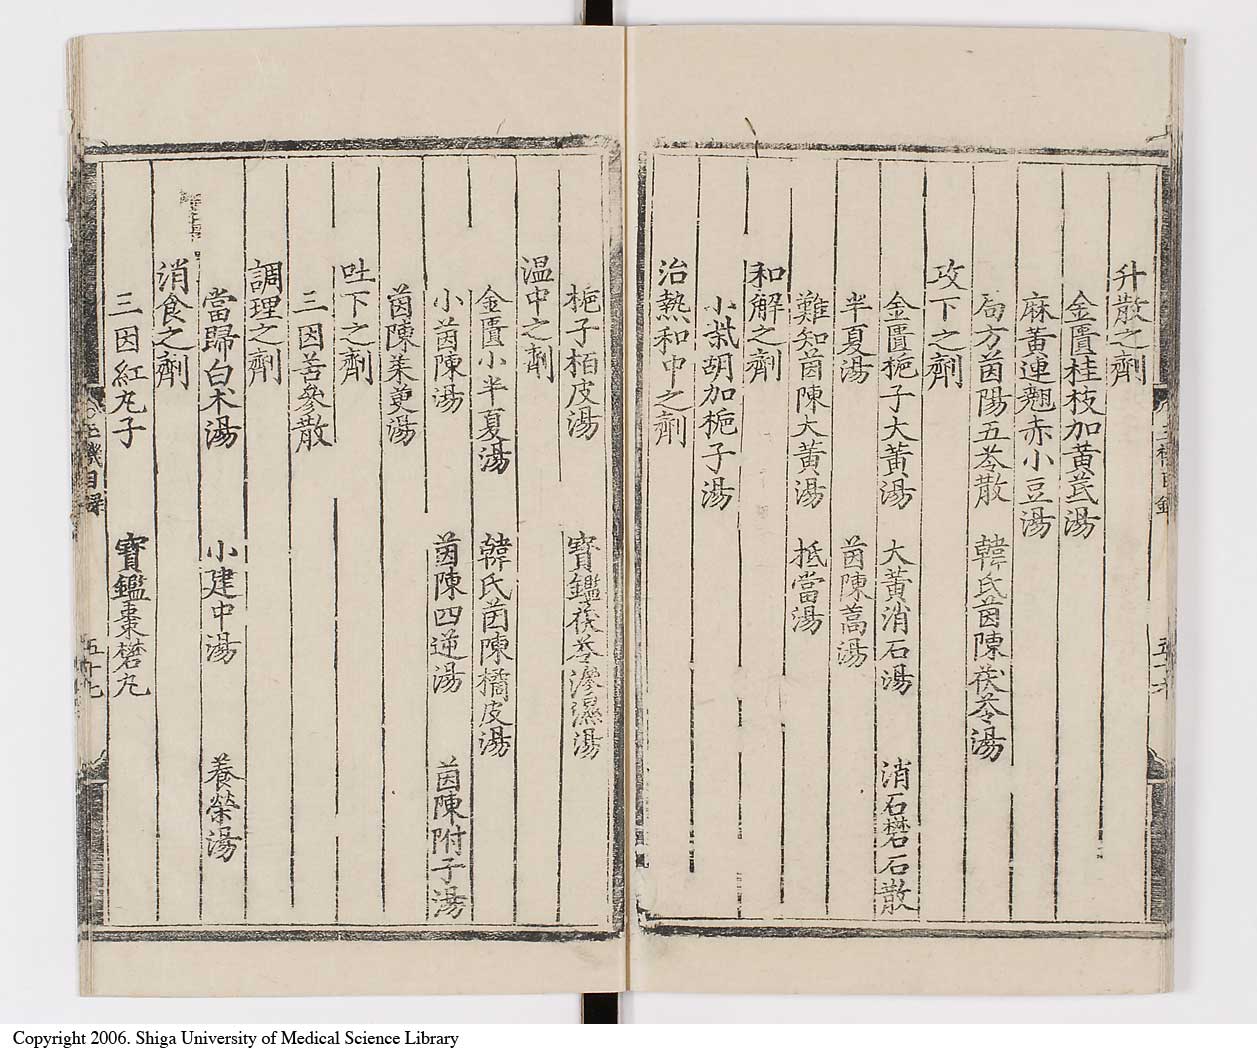 升散之劑
金匱桂枝加黃芪湯
麻黃連翹赤小豆湯
局方茵陽五苓散　韓氏茵陳茯苓湯
攻下之劑
金匱梔子大黃湯　大黃消石湯　消石礬石散
半夏湯　茵陳蒿湯
難知茵陳大黃湯　抵當湯
和解之劑
小柴胡加梔子湯
治熱和中之劑
梔子栢皮湯　寳鑑茯苓滲濕湯
温中之劑
金匱小半夏湯　韓氏茵陳橘皮湯
小茵陳湯　茵陳四逆湯　茵陳附子湯
茵陳茱萸湯
吐下之劑
三因苦參散
調理之劑
當歸白术湯　小建中湯　養榮湯
消食之劑
三因紅丸子　寳鑑棗礬丸
玉機目録
五十七
Copyright 2006. Shiga University of Medical Science Library